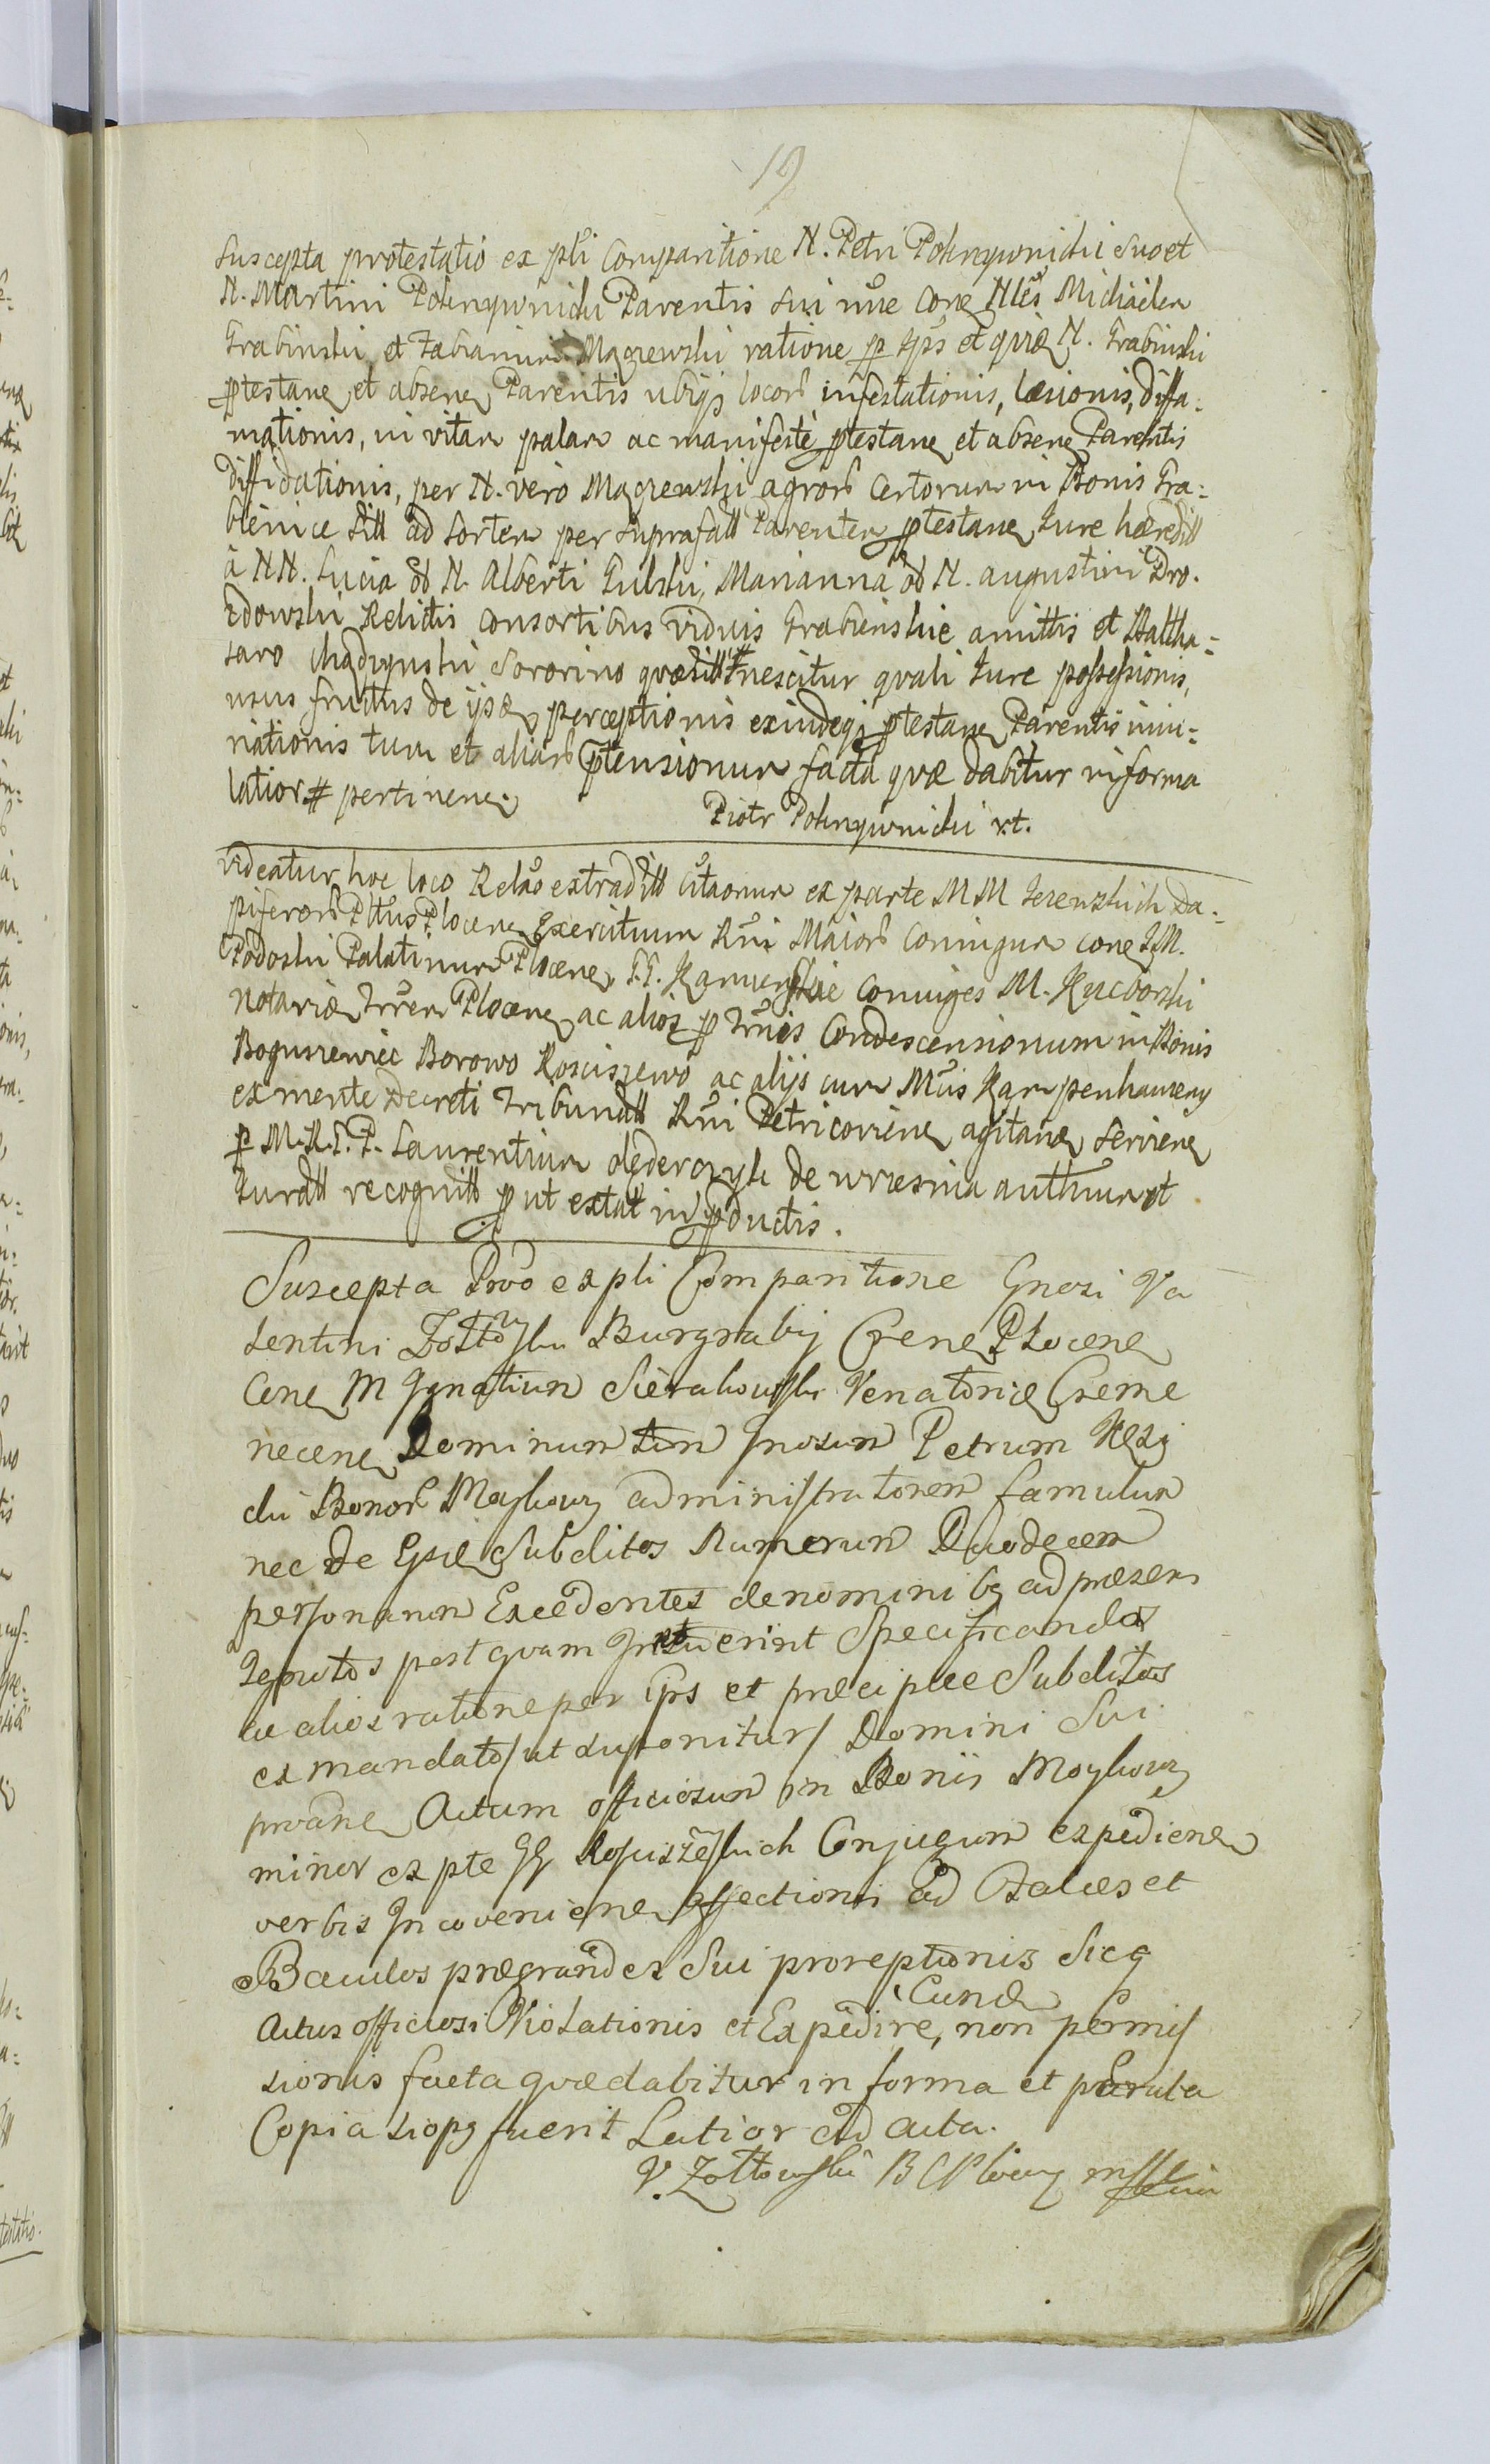 19
Suscepta protestatio ex pℓi Comparitione N. Petri Pokrzywnicki suo et
N. Martini Pokrzywnicki Parentis sui nõie cone Nles Michaelem
Grabinski et Fabianum Magrewski ratione p ipṡ et quiđ N. Grabinski
ptestane et absene Parentis ubiqȝ locoŕ infestationis, læsionis, diffa-
mationis, in vitam palam ac manifestè ptestane et absene Parentis
diffidationis, per N. verò Magrewski agroŕ Certorum in Bonis Gra-
bienice sitt ad sortem per suprafatt Parentem ptestane Iure hæreditt
à NN. Lucia od N. Alberti Gulski, Marianna od N. Augustini Dro-
zdowski Relictis Consortibus viduis Grabienskie amittis et Baltha-
saro Chądzynski Sororino quæsitt # nescitur quali Iure possessionis,
usus fructus de ijsđ perceptionis exindeqȝ ptestane Parentis iniu-
riationis tum et aliaŕ ptensionum facta quæ dabitur in forma
latiori # pertinene.
Piotr Pokrzywnicki v.t.
Videatur hoc loco Relao extraditt Citaonum ex parte MM Jezewskich Da-
piferoŕ Pttus Plocene Exercituum Rni Maioŕ Coniugum cone IM.
Podoski Palatinum Plocene, G.G. Karnienskie Coniuges M. Kuczborski
Notariũ Trrem Plocene ac alios p Tmis Condescensionum in Bonis
Boguszewiec Borowo Kosciszewo ac alijs cum Mcis Kampenhauzeny
ex mente Decreti Tribunatt Rni Petricoviene agitane serviene
p M.R.I.P. Laurentium Olederczyk de Wrzesnia authum et
Iuratt recognitt p ut extat in pductis.
Suscepta Prõo ex pli Comparitione Gnosi Va
lentini Żołtowski Burgrabij Crene Plocene
Cone M Ignatium Sierakowski Venatoriđ Creme
necene Dominum Tum Gnosum Petrum
cki Bonoŕ Maykowy administratorem famulum
nec de Gne Subditos Numerum Duodecem
personarum Excedentes de nominibȝ ad præsens
Ignotos postquam Inotuerint Specificandos
ac alios ratione per ipṡ et præcipue Subditos
ex mandato / ut suponitur / Domini Sui
proane Actum officiosum in Bonis Maykowy
minor ex pte GG Kosciszewskich Conjugum expediene
verbis Incoveniene Affectionis ad Calces et
Baculos prægrandes Sui proreptionis Sicq
Cunđ
Actus officiosi Violationis et Expedire, non permis
sionis facta quæ dabitur in forma et pErata
Copia siopȝ fuerit Latior ad acta.
V. Zołtowski B C Plocęy msstim